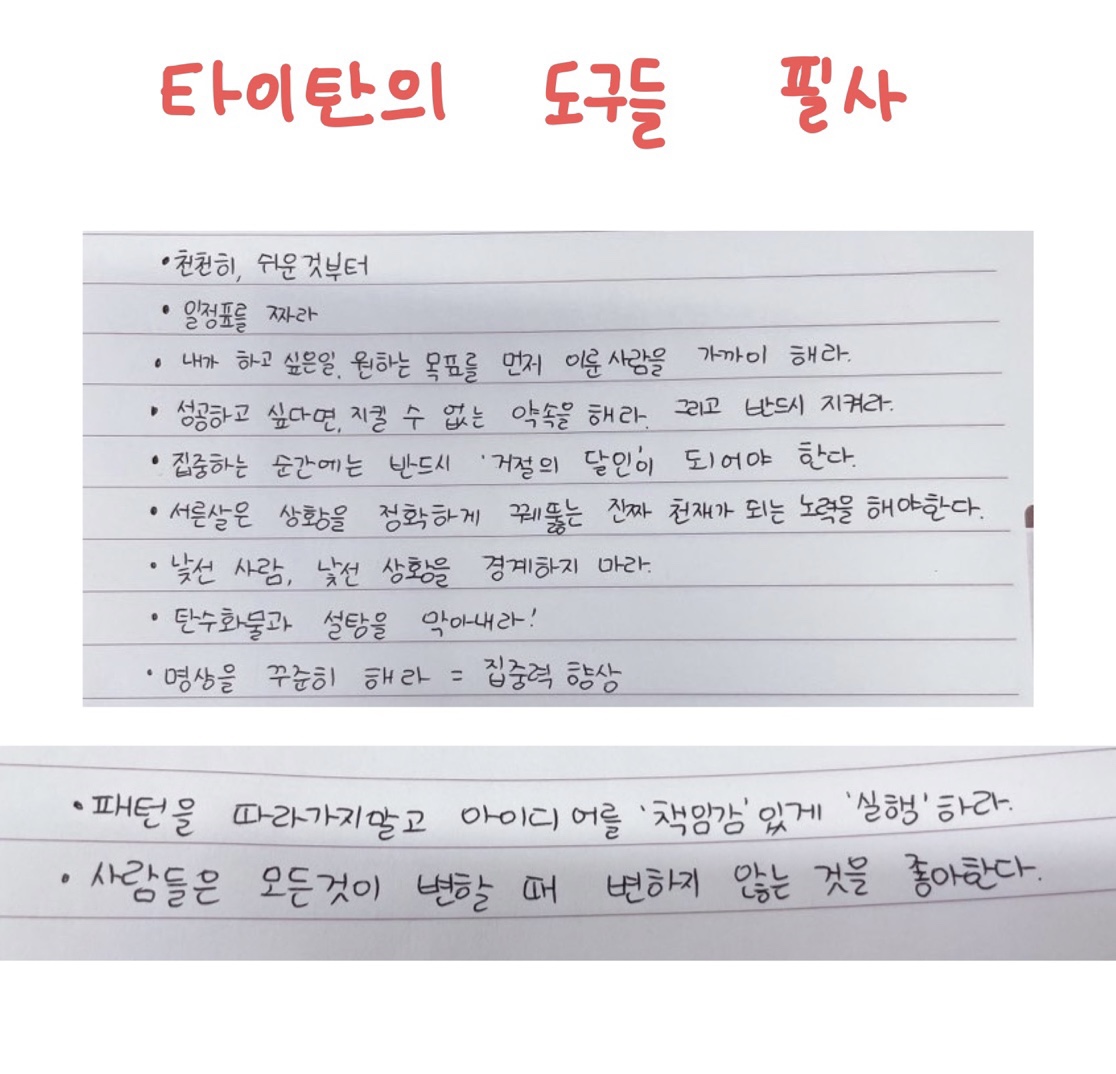 타이탄의 도구들 필사
• 천천히, 쉬운것부터
• 일정표를 짜라
• 내가 하고 싶은일, 원하는 목표를 먼저 이룬 사람을 가까이 해라.
• 성공하고 싶다면, 지킬 수 없는 약속을 해라. 그리고 반드시 지켜라.
• 집중하는 순간에는 반드시 '거절의 달인'이 되어야 한다.
• 서른살은 상황을 정확하게 꿰뚫는 진짜 천재가 되는 노력을 해야한다.
• 낯선 사람, 낯선 상황을 경계하지 마라.
• 탄수화물과 설탕을 막아내라!
• 명상을 꾸준히 해라 = 집중력 향상
• 패턴을 따라가지말고 아이디어를 '책임감'있게 '실행'하라.
• 사람들은 모든것이 변할 때 변하지 않는 것을 좋아한다.